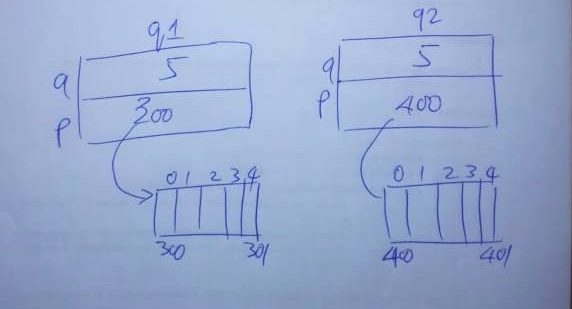 q1
q 5
p 300
0 1 2 3 4
300 301
q2
q 5
p 400
0 1 2 3 4
400 401